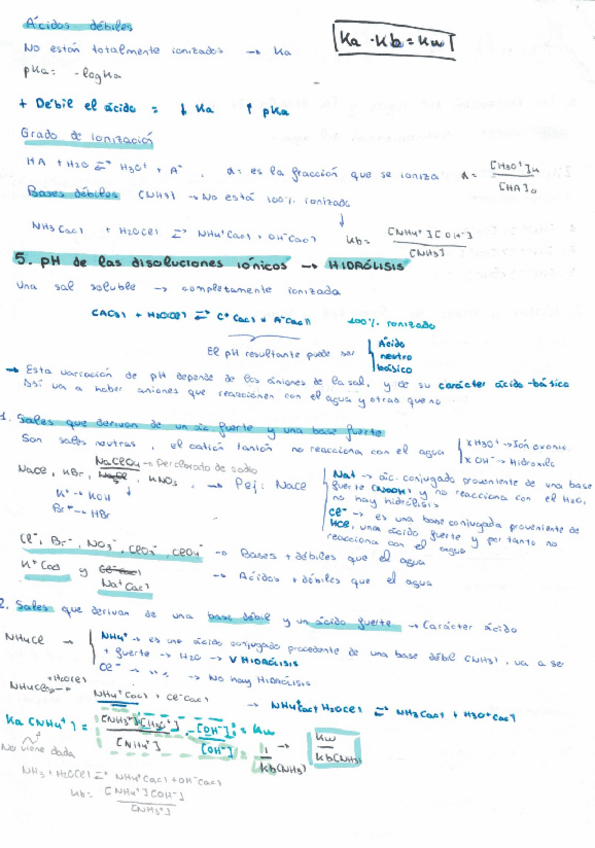 Ácidos débiles
Ka · Kb = Kw
No están totalmente ionizados → Ka
pKa = -logKa
+ Débil el ácido = ↓ Ka ↑ pKa
Grado de ionización
HA + H2O ⇄ H3O+ + A-, α = es la fracción que se ioniza α = [H3O+]
[HA]o
Bases débiles (NH3) → No está 100% ionizado
NH3(ac) + H2O(l) ⇄ NH4+(ac) + OH-(ac) Kb = [NH4+][OH-]
[NH3]
5. pH de las disoluciones iónicos → HIDRÓLISIS
Una sal soluble → completamente ionizada
CA(s) + H2O(l) ⇄ C+(ac) + A-(ac) 100% ionizado
El pH resultante puede ser
Ácido
neutro
básico
→ Esta variación de pH depende de los aniones de la sal, y de su carácter ácido-básico
Así va a haber aniones que reaccionen con el agua y otros que no
1. Sales que derivan de un ác fuerte y una base fuerte
Son sales neutras, el catión tanión no reacciona con el agua
x H3O+ → Ion
x OH- → Hidroxilo
NaClO4 → Perclorato de sodio
NaCl, KBr, KNO3, → Pej: NaCl
K+ → KOH
Br- → HBr
Na+ → ác. conjugado proveniente de una base
fuerte (NaOH) y no reacciona con el H2O,
no hay hidrólisis
Cl- → es una base conjugada proveniente de
HCl, una ácido fuerte y por tanto no
reacciona con el agua
Cl-, Br-, NO3-, ClO3-, ClO4- → Bases + débiles que el agua
K+(ac) y
Na+(ac) → Ácidos + débiles que el agua
2. Sales que derivan de una base débil y un ácido fuerte → Carácter ácido
NH4Cl →
NH4+ → es une ácido conjugado procedente de una base débil (NH3), va a se
+ fuerte → H2O → V HIDRÓLISIS
Cl- → " " → No hay HIDRÓLISIS
+H2O(l)
NH4Cl → NH4+(ac) + Cl-(ac) → NH4+(ac) + H2O(l) ⇄ NH3(ac) + H3O+(ac)
Ka (NH4+) = [NH3][H3O+] · [OH-] = Kw
[NH4+] [OH-]
1
Kb(NH3)
→ Kw
Kb(NH3)
No viene dada
NH3 + H2O(l) ⇄ NH4+(ac) + OH-(ac)
Kb = [NH4+][OH-]
[NH3]